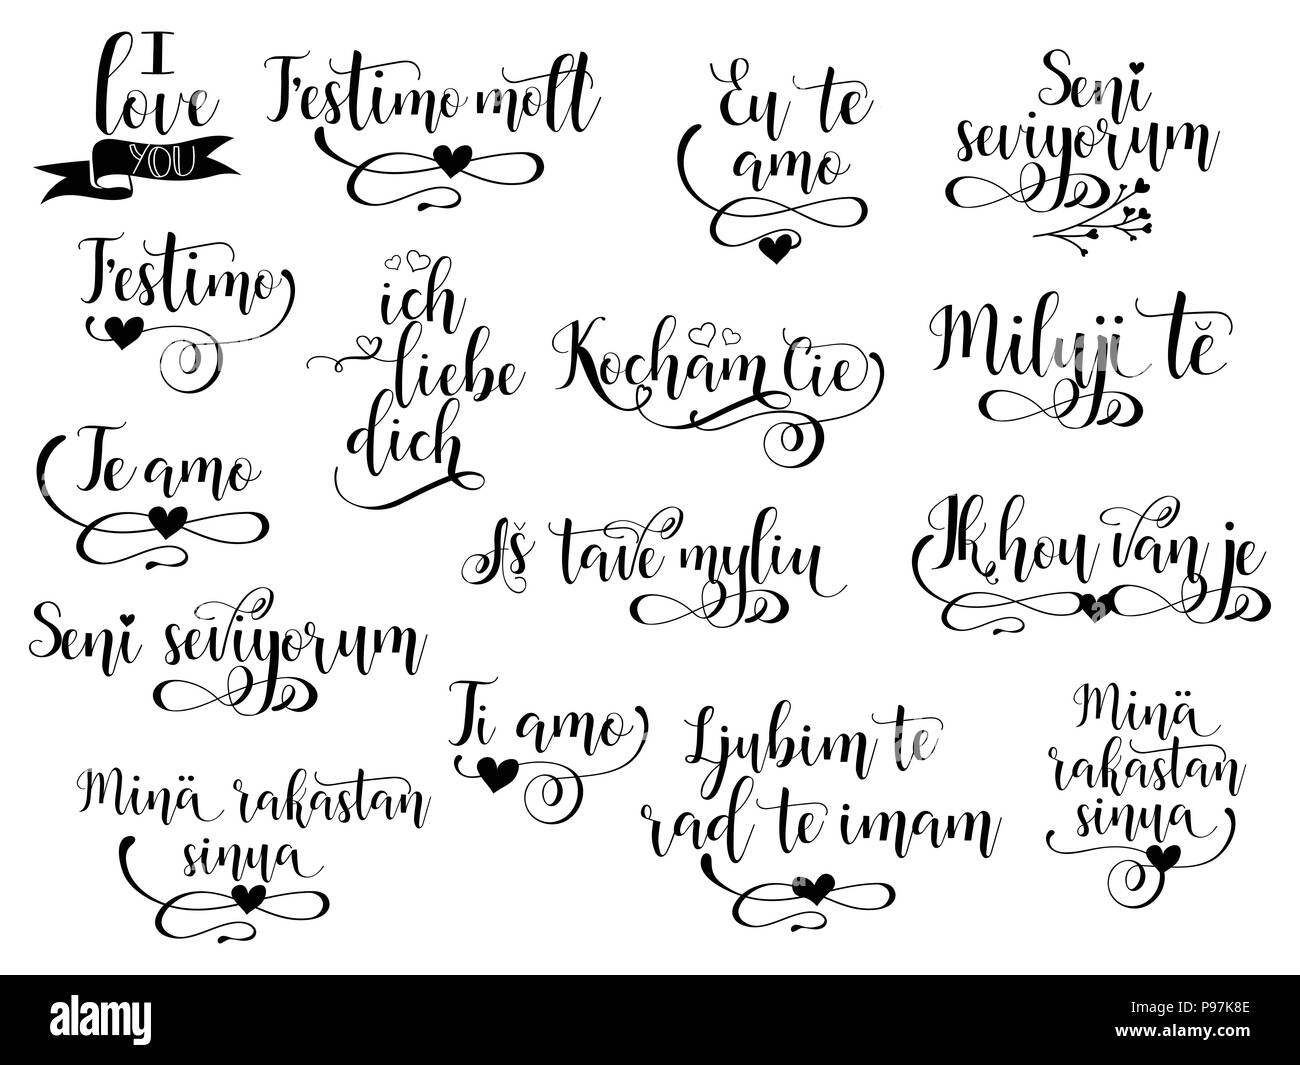 I
love
YOU
T'estimo molt
Eu te
amo
Seni
seviyorum
T'estimo
ich
liebe
dich
Kocham Cie
Milyji tě
Te amo
Aš tave myliu
Ik hou van je
Seni seviyorum
Ti amo
Ljubim te
rad te imam
Minä
rakastan
sinua
Minä rakastan
sinua
alamy
Image ID: P97K8E
www.alamy.com